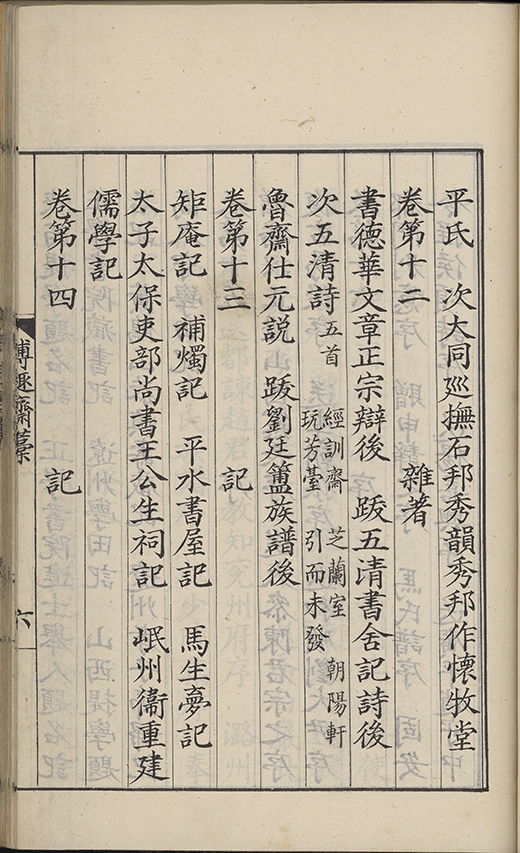 平氏　次大同廵撫石邦秀韻秀邦作懷牧堂
卷第十二　雜著
書德華文章正宗辯後　跋五清書舍記詩後
次五清詩五首　經訓齋　芝蘭室　朝陽軒
玩芳臺　引而未發
魯齋仕元説　跋劉廷簠族譜後
卷第十三　記
矩庵記　補燭記　平水書屋記　馬生夢記
太子太保吏部尚書王公生祠記　岷州衞重建
儒學記
卷第十四　記
博趣齋藁　六